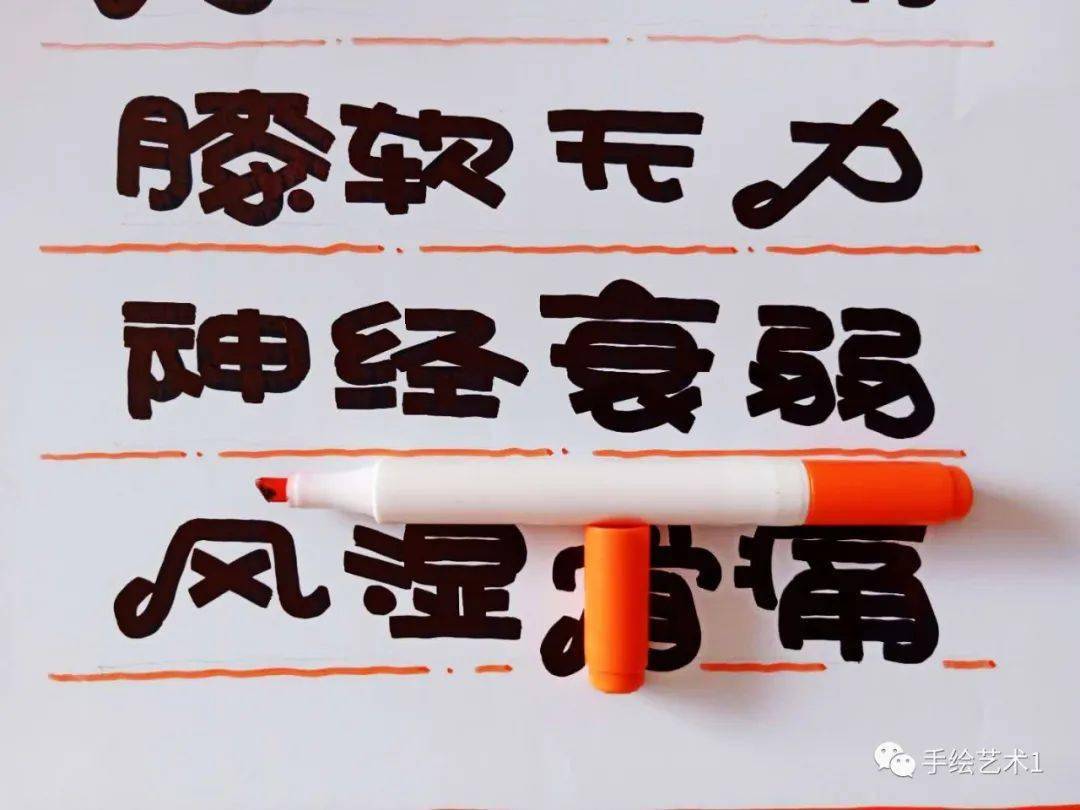 膝软无力
神经衰弱
风湿骨痛
手绘艺术1